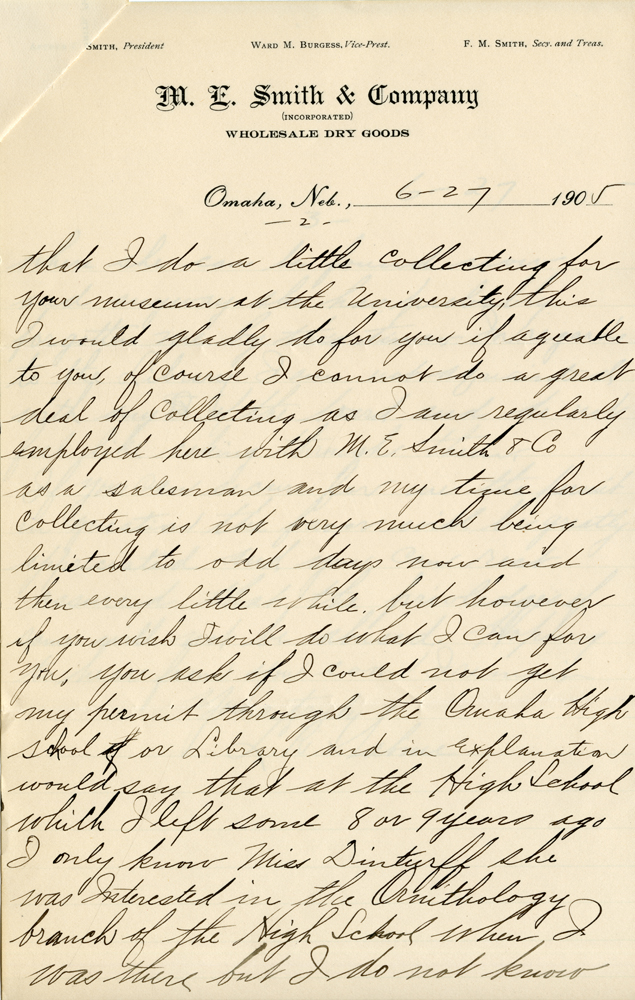 SMITH, President WARD M. BURGESS, Vice-Prest. F. M. SMITH, Secy. and Treas.
M. E. Smith & Company
(INCORPORATED)
WHOLESALE DRY GOODS
Omaha, Neb., 6-27 1905
- 2 -
that I do a little collecting for
your museum at the University, this
I would gladly do for you if agueable
to you, of course I cannot do a great
deal of collecting as I am regularly
employed here with M. E. Smith & Co
as a salesman and my time for
collecting is not very much being
limited to odd days now and
then every little while. but however
if you wish I will do what I can for
you, you ask if I could not get
my permit through the Omaha High
school or Library and in explanation
would say that at the High School
which I left some 8 or 9 years ago
I only know Miss Dinturff she
was Interested in the Ornithology
branch of the High School when I
was there but I do not know